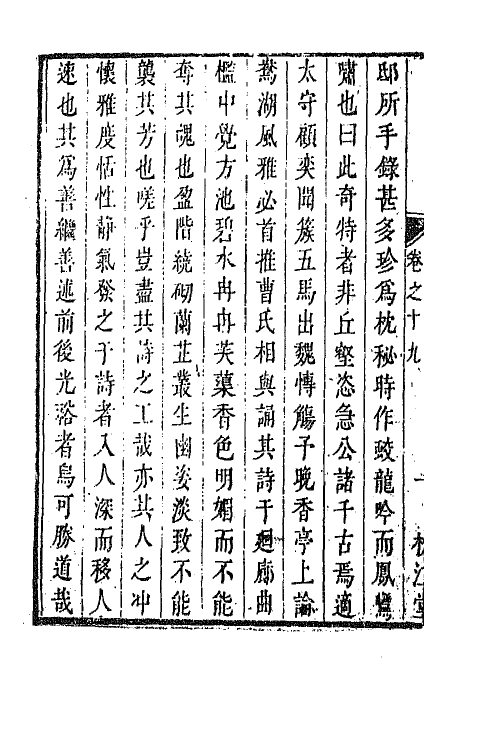 卷之十九
邸所手錄甚多珍爲枕秘時作蛟龍吟而鳳鸞
嘯也曰此奇特者非丘壑恣急公諸千古焉適
太守顧奕聞簇五馬出魏博觴予晚香亭上論
鴦湖風雅必首推曹氏相與誦其詩于廻廊曲
檻中覺方池碧水冉冉芙蕖香色明媚而不能
奪其魂也盈階繞砌蘭芷叢生幽姿淡致不能
襲其芳也嗟乎豈盡其詩之工哉亦其人之冲
懷雅度恬性靜氣發之于詩者入人深而移人
速也其爲善繼善述前後光潞者烏可勝道哉